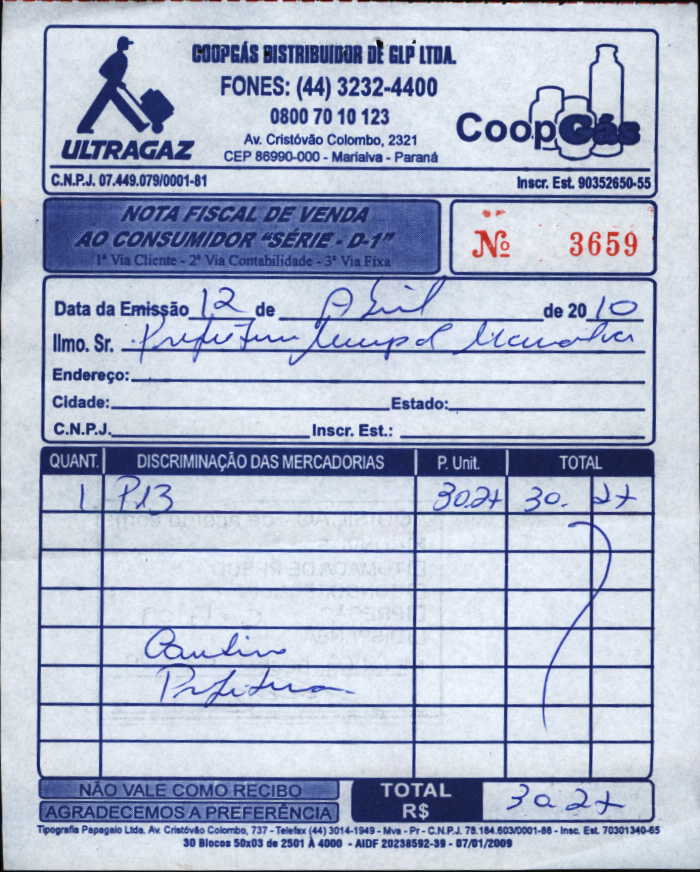 COOPGÁS DISTRIBUIDOR DE GLP LTDA.
FONES: (44) 3232-4400
0800 70 10 123
Av. Cristóvão Colombo, 2321
CEP 86990-000 - Marialva - Paraná
ULTRAGAZ
CoopGás
C.N.P.J. 07.449.079/0001-81
Inscr. Est. 90352650-55
NOTA FISCAL DE VENDA
AO CONSUMIDOR "SÉRIE - D-1"
1ª Via Cliente - 2ª Via Contabilidade - 3ª Via Fixa
Nº 3659
Data da Emissão 12 de Abril de 2010
Ilmo. Sr. Prefeitura
Endereço:
Cidade: Estado:
C.N.P.J. Inscr. Est.:
QUANT. DISCRIMINAÇÃO DAS MERCADORIAS P. Unit. TOTAL
1 P.13 30.27 30. 27
Prefeitura
NÃO VALE COMO RECIBO
AGRADECEMOS A PREFERÊNCIA
TOTAL
R$ 30.27
Tipografia Papagaio Ltda. Av. Cristóvão Colombo, 737 - Telefax (44) 3014-1949 - Mva - Pr - C.N.P.J. 78.184.603/0001-86 - Insc. Est. 70301340-65
30 Blocos 50x03 de 2501 À 4000 - AIDF 20238592-39 - 07/01/2009